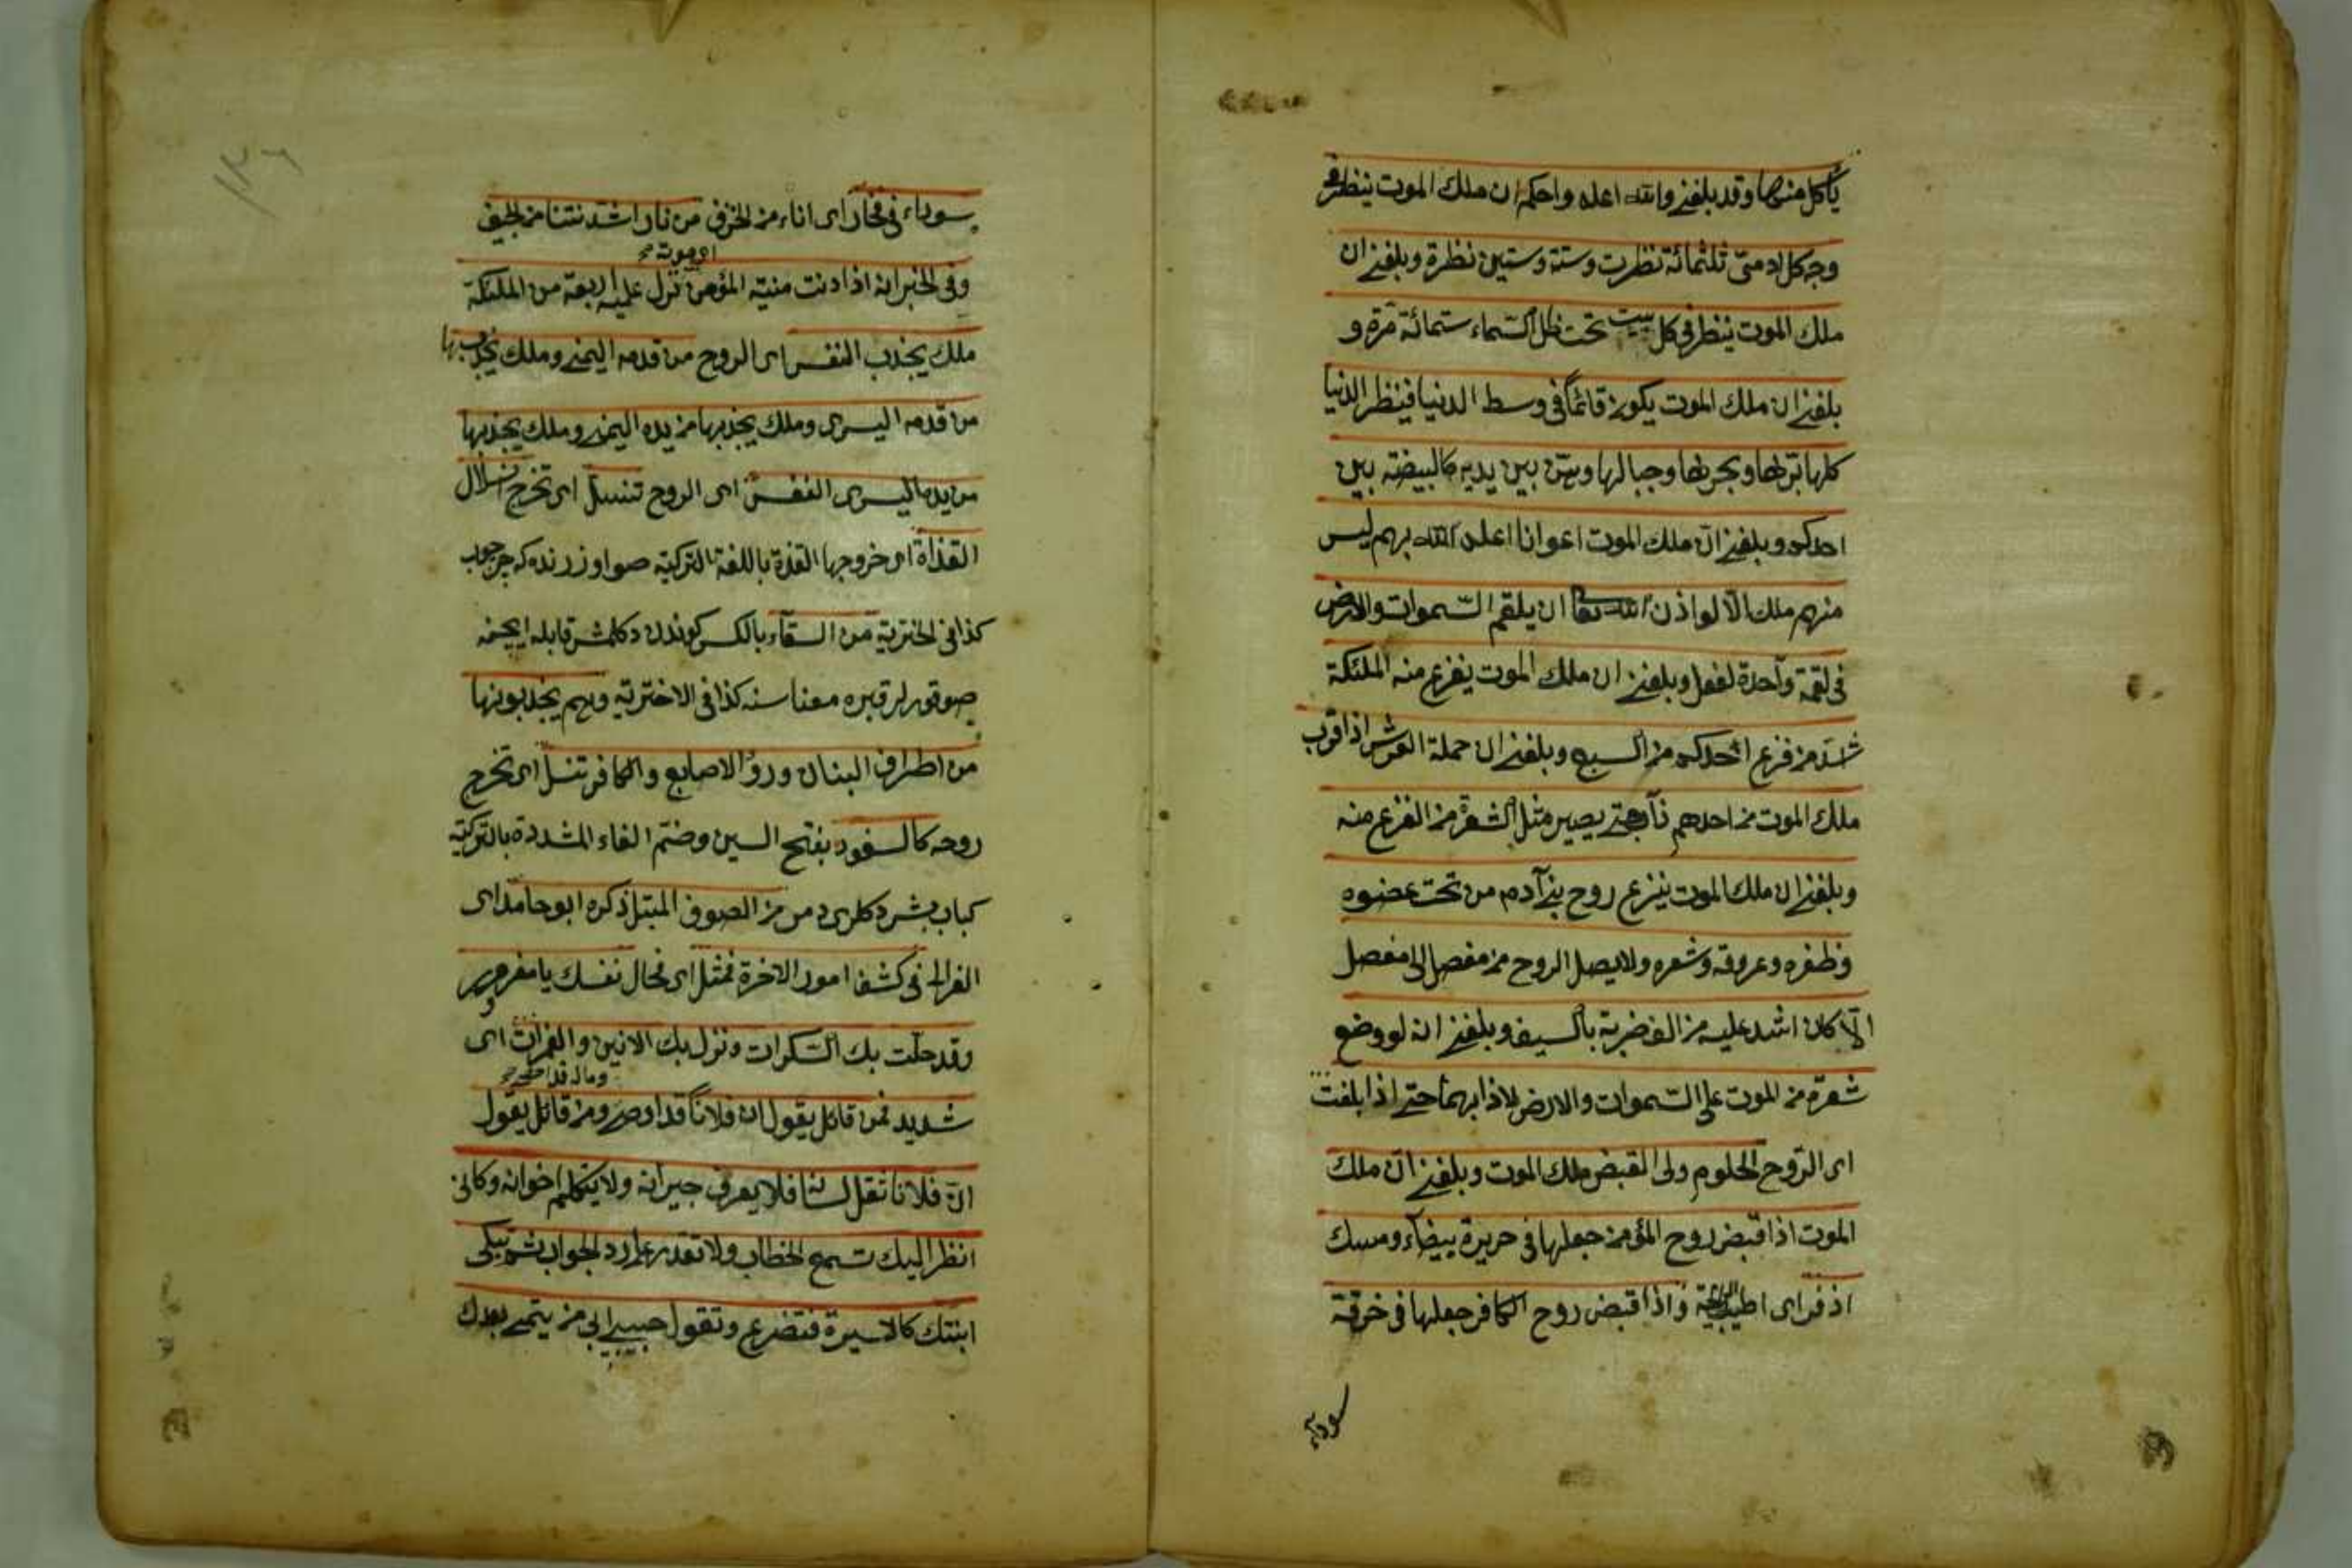 يأكل منها وقد بلغنى والله اعلم واحكم ان ملك الموت ينظر فى
وجه كل ادمىّ ثلثمائة نظرت وستة وستين نظرة وبلغنى ان
ملك الموت ينظر فى كل بيت تحت ظل السّماء ستمائة مرة و
بلغنى ان ملك الموت يكون قائماً فى وسط الدنيا فينظر الدنيا
كلها برّها وبحرها وجبالها وهى بين يديه كالبيضة بين
احدكم وبلغنى ان ملك الموت اعوانا اعلم الله بهم ليس
منهم ملك الّا لو اذن الله تعا ان يلقم السّموات والارض
فى لقمة واحدة لفعل وبلغنى ان ملك الموت يفزع منه الملئكة
شدّ من فزع احدكم من السبع وبلغنى ان حملة العرش اذا قرب
ملك الموت من احدهم ذاب حتى يصير مثل الشعرة من الفزع منه
وبلغنى ان ملك الموت ينزع روح بنى آدم من تحت عضوه
وظفره وعروقه وشعره ولا يصل الروح من مفصل الى مفصل
الّا كان اشد عليه من الف ضربة بالسيف وبلغنى انه لو وضع
شعرة من الموت على السّموات والارض لاذابهما حتى اذا بلغت
اى الرّوح الحلقوم ولى القبض ملك الموت وبلغنى انّ ملك
الموت اذا قبض روح المؤمن جعلها فى حريرة بيضآء ومسك
اذفر اى اطيب الرايحة واذا قبض روح الكافر جعلها فى خرقة
سودآء
١٣٦
سوداء فى فخار اى اناء من الخزف من نار اشد نتنا من الجيف
اى موته صح
وفى الخبر انه اذا دنت منية المؤمن نزل عليه اربعة من الملئكة
ملك يجذب النفس اى الروح من قدمه اليمنى وملك يجذبها
من قدمه اليسرى وملك يجذبها من يده اليمنى وملك يجذبها
من يده اليسرى النفس اى الروح تنسلّ اى تخرج انسلال
القذاة اى خروجها القذة باللغة التركية صو اوزرنده كه چرچوپ
كذا فى اختريه من السقآء بالكسر كوندن دكلمش قابله ايچنه
صو قورلر قيره معناسنه كذا فى الاختريه وهم يجذبونها
من اطراف البنان ورؤ الاصابع والكافر تنسلّ اى تخرج
روحه كالسفود بفتح السين وضم الفاء المشددة بالتركيّه
كباب بشردكلرى دمر من الصوف المبتل ذكره ابو حامد اى
الغزالى فى كشف امور الاخرة فمثل اى فحال نفسك يا مغرور
وقد حلّت بك السّكرات ونزل بك الانين والغمرات اى
وماله قد احصى صح
شديد فمن قائل يقول ان فلاناً قد اوصى ومن قائل يقول
انّ فلانا ثقل لسانه فلا يعرف جيرانه ولا يتكلم اخوانه وكانى
انظر اليك تسمع الخطاب ولا تقدر على رد الجواب ثم تبكى
ابنتك كالاسيرة فتضرع وتقول حبيبى ابى من يتمى بعدك